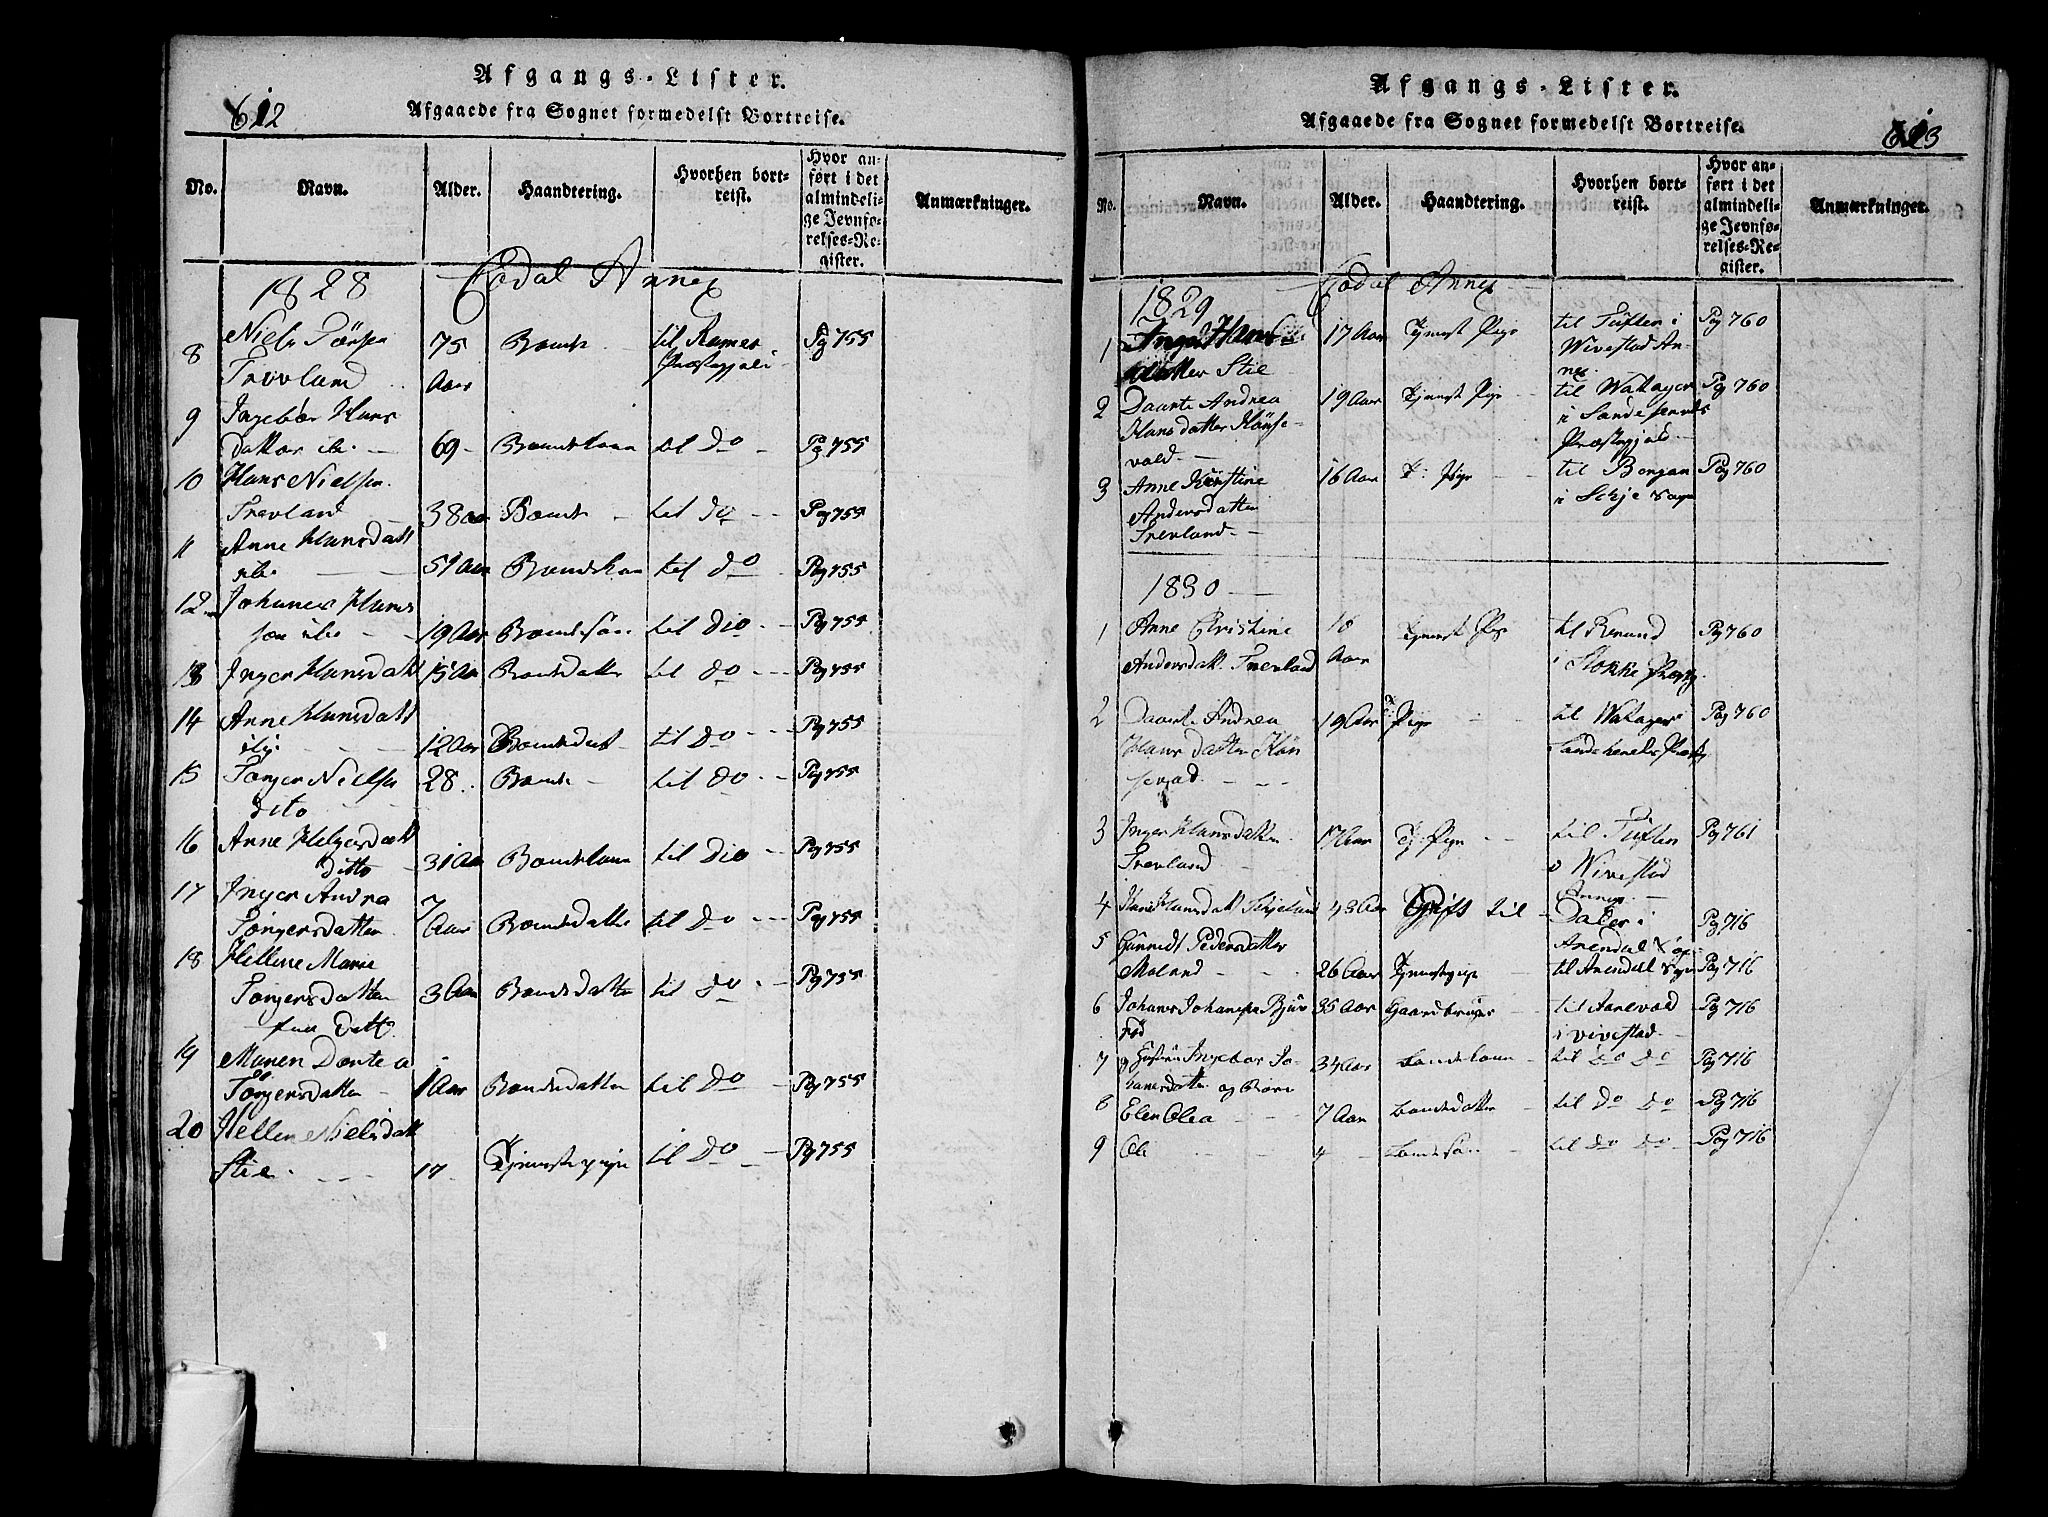 612
Afgangs-Lister.
Afgaaede fra Sognet formedelst Bortreise.
No. Navn. Alder. Haandtering. Hvorhen bortreist. Hvor anført i det almindelige Jevnførelses-Register. Anmærkninger.
1828 Annex
8 Niels 75 Bonde til Ramnes Pg 755
Trevland Aar Præstegjeld
9 Ingebor Hans
datter ibi 69 Bondekone til do Pg 755
10 Hans Nielsen
Trevland 38 Aar Bonde til do Pg 755
11 Anne Hansdatt
ibi 51 Aar Bondekone til do Pg 755
12 Johannes Hans
søn ibi 19 Aar Bondesøn til dio Pg 755
13 Inger Hansdatt 15 Aar Bondedatter til do Pg 755
14 Anne Hansdatt
ibi 12 Aar Bondedatt til do Pg 755
15 Torger Nielsen 28 Bonde til do Pg 755
dito
16 Anne Helgersdatt
ditto 31 Aar Bondekone til dio Pg 755
17 Inger Andrea 7
Torgersdatter Aar Bondedatter til do Pg 755
18 Hellene Marie
Torgersdatter 3 Aar Bondedatter til do Pg 755
19 Maren Dorte a
Torgersdatter 1 Aar Bondedatter til do Pg 755
20 Hellene Nielsdatt
Stie 17 Tjenestepige til do Pg 755
613
Afgangs-Lister.
Afgaaede fra Sognet formedelst Bortreise.
No. Navn. Alder. Haandtering. Hvorhen bortreist. Hvor anført i det almindelige Jevnførelses-Register. Anmærkninger.
1829 Annex
1 Inger Hans 17 Aar Tjenest Pige til Tuften i Pg 760
datter Stie Wivestad An
nex
2 Daarte Andrea 19 Aar Tjenest Pige til Pg 760
Hansdatter i Sandeherreds
vold Præstegjeld
3 Anne Kirstine 16 Aar T: Pige til Pg 760
Andersdatter i Sogn
Trevland
1830
1 Anne Christine 18 Tjenest Pige til Pg 760
Andersdatt Trevland Aar i Stokke Præstg
2 Daarte Andrea 19 Aar Pige til Pg 760
Hans datter Sandeherreds Præstg
3 Inger Hansdatter 17 Aar Tj: Pige til Tuften Pg 761
Trevland i Wivestad
Annex
4 Hansdatt 43 Aar Gift til Pg 716
5 Gunnild Pedersdatter Arendal
Moland 26 Aar Tjenestepige til Arendal Pg 716
6 Johannes Johannesen 35 Aar Gaardbruger til Pg 716
rød i vivestad
7 Ingebor Jo 34 Aar bondekone til do do Pg 716
hanesdatter og Børn
8 Elen Olea 7 Aar bondedatter til do do Pg 716
9 Ole 4 bondesøn til do do Pg 716